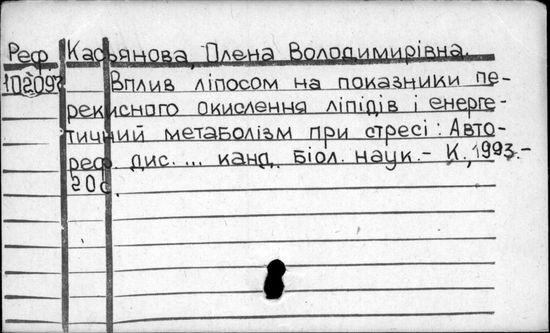 Реф Касьянова, Олена Володимирівна.
102097 Вплив ліпосом на показники пе-
рекисного окислення ліпідів і енерге-
тичний метаболізм при стресі: Авто-
реф. дис. ... канд. біол. наук. - К., 1993. -
20с.